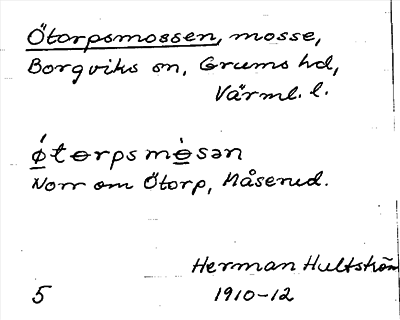 Ötorpsmossen, mosse,
Borgviks sn, Grums hd,
Värml. l.
ǿtɵrpsmɵ̀sən
Norr om Ötorp, Måserud.
Herman Hultström
5 1910-12